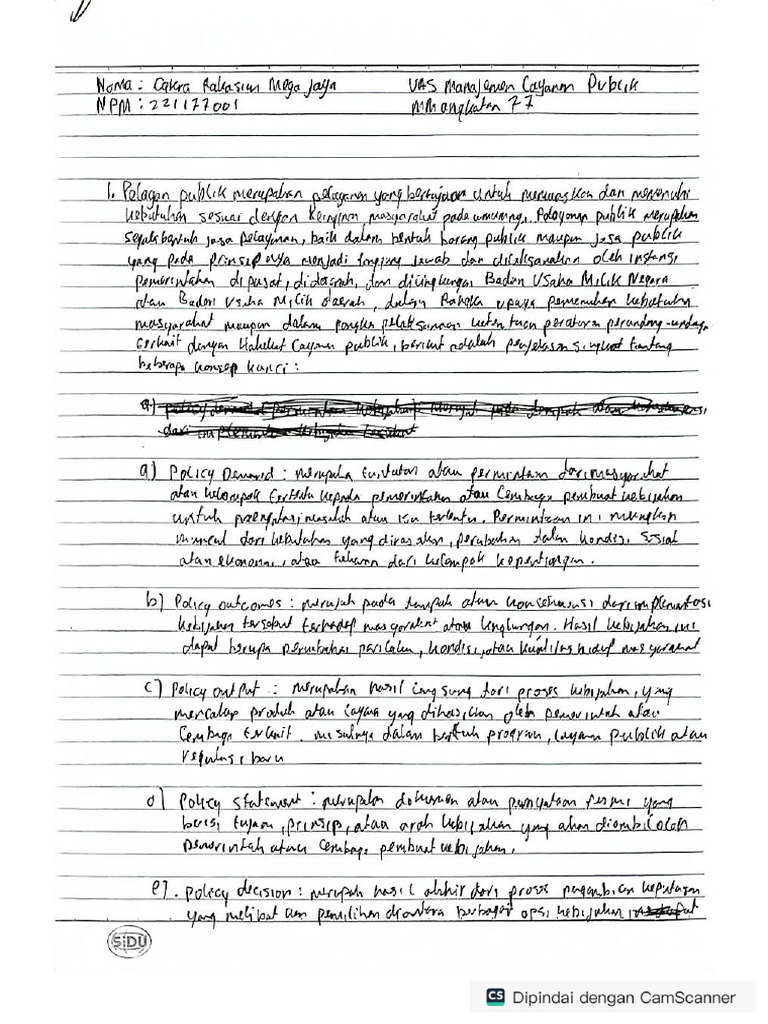 Nama : Cakra Raksasiwi Mega Jaya UAS Manajemen Layanan Publik
NPM : 221177001 MM angkatan 77
1. Pelayan publik merupakan pelayanan yang bertujuan untuk memuaskan dan memenuhi
kebutuhan sesuai dengan keinginan masyarakat pada umumnya. Pelayanan publik merupakan
segala bentuk jasa pelayanan, baik dalam bentuk barang publik maupun jasa publik
yang pada prinsipnya menjadi tanggung jawab dan dilaksanakan oleh instansi
pemerintahan dipusat, didaerah, dan dilingkungan Badan Usaha Milik Negara
atau Badan Usaha Milik daerah, dalam Rangka upaya pemenuhan kebutuhan
masyarakat maupun dalam rangka pelaksanaan ketentuan peraturan perundang-undangan
terkait dengan Hakikat Layanan publik, berikut adalah penjelasan singkat tentang
beberapa konsep kunci :
a) Policy Demand : merupakan tuntutan atau permintaan dari masyarakat
atau kelompok tertentu kepada pemerintahan atau Lembaga pembuat kebijakan
untuk mengatasi masalah atau isu tertentu. Permintaan ini mungkin
muncul dari kebutuhan yang dirasakan, perubahan dalam kondisi sosial
atau ekonomi, atau tekanan dari kelompok kepentingan.
b) Policy outcomes : merujuk pada dampak atau konsekuensi dari implementasi
kebijakan tersebut terhadap masyarakat atau lingkungan. Hasil kebijakan ini
dapat berupa perubahan perilaku, kondisi, atau kualitas hidup masyarakat
c) Policy output : merupakan hasil langsung dari proses kebijakan, yang
mencakup produk atau layanan yang dihasilkan oleh pemerintah atau
Lembaga terkait. misalnya dalam bentuk program, layanan publik atau
regulasi baru
d) Policy statement : merupakan dokumen atau pernyataan resmi yang
berisi tujuan, prinsip, atau arah kebijakan yang akan diambil oleh
pemerintah atau Lembaga pembuat kebijakan.
e). Policy decision : merupakan hasil akhir dari proses pengambilan keputusan
yang melibatkan pemilihan diantara berbagai opsi kebijakan
SiDU
CS Dipindai dengan CamScanner